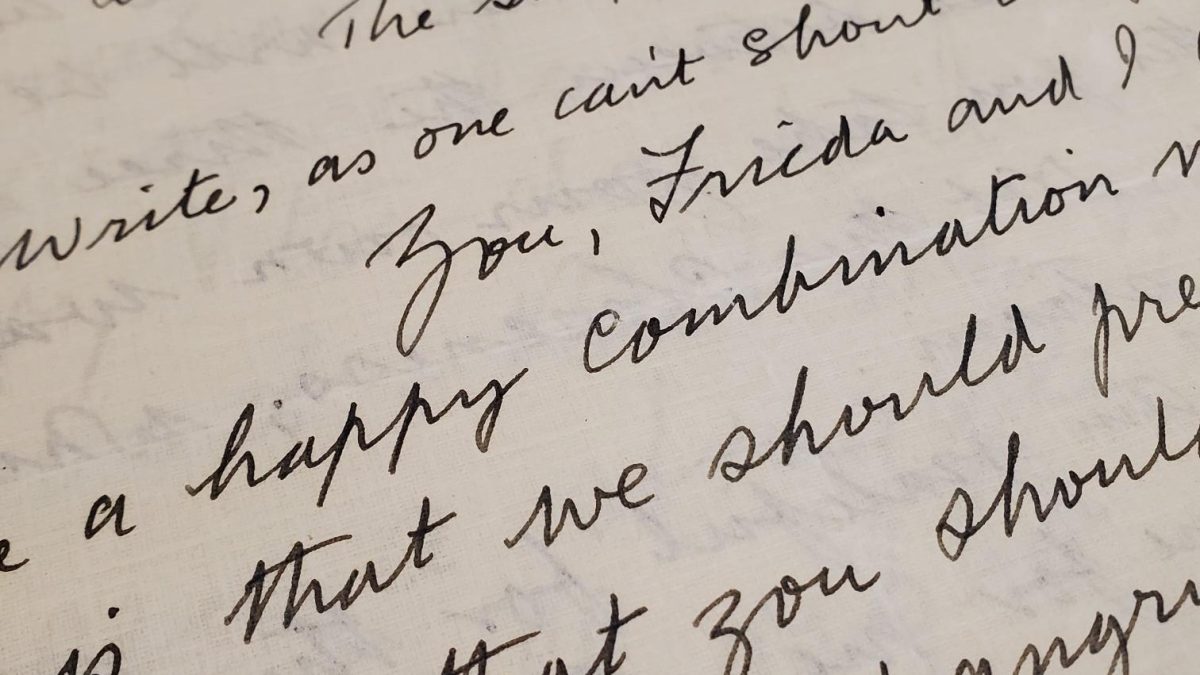 The
write, as one can't shout
You, Frieda and I
a happy combination
that we should pre
that you should